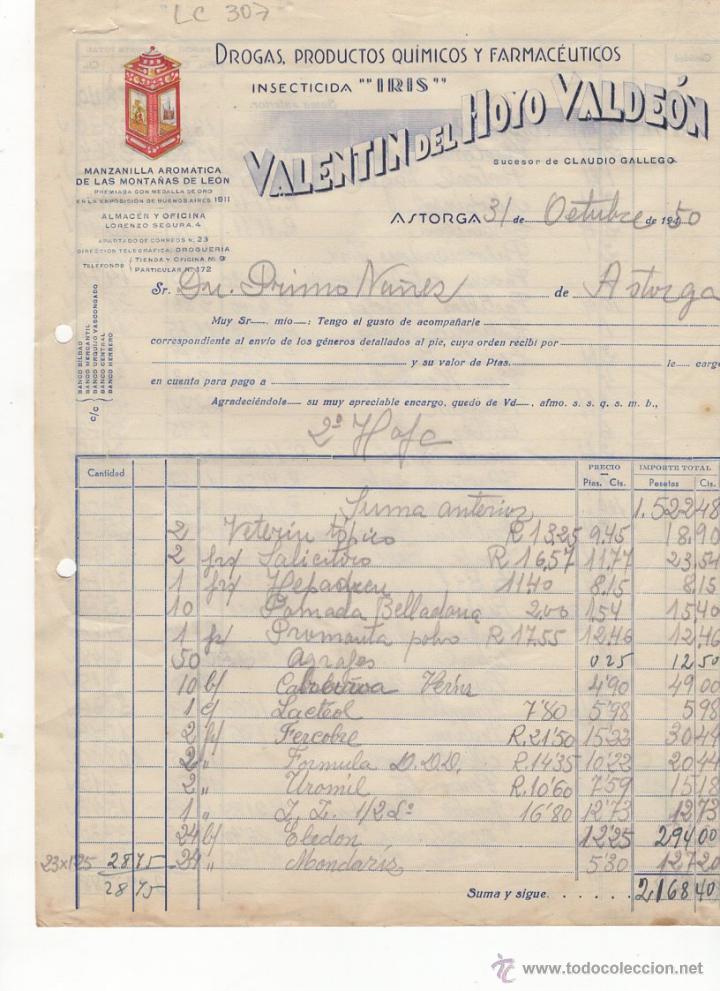 "LC 307"
DROGAS, PRODUCTOS QUÍMICOS Y FARMACÉUTICOS
INSECTICIDA ""IRIS""
VALENTIN DEL HOYO VALDEÓN
sucesor de CLAUDIO GALLEGO
MANZANILLA AROMATICA
DE LAS MONTAÑAS DE LEON
PREMIADA CON MEDALLA DE ORO
EN LA EXPOSICIÓN DE BUENOS AIRES 1911
ALMACÉN Y OFICINA
LORENZO SEGURA, 4
APARTADO DE CORREOS N. 23
DIRECCIÓN TELEGRÁFICA: DROGUERIA
TELEFONOS { TIENDA Y OFICINA Nº 9
PARTICULAR Nº 172
ASTORGA 31 de Octubre de 1950
Sr. Dn. Primo Nuñez de Astorga
BANCO BILBAO
BANCO MERCANTIL
BANCO URQUIJO VASCONGADO
BANCO CENTRAL
BANCO HERRERO
c/c
Muy Sr. mio: Tengo el gusto de acompañarle
correspondiente al envío de los géneros detallados al pie, cuya orden recibí por
y su valor de Ptas. le cargo
en cuenta para pago a
Agradeciéndole su muy apreciable encargo, quedo de Vd , afmo. s. s. q. s. m. b.,
2ª Hoja
Cantidad PRECIO IMPORTE TOTAL
Ptas. Cts. Pesetas Cts.
Suma anterior 1.522 48
2 Veterin tópico R 13,25 9,45 18,90
2 Salicitiro R 16,57 11,77 23,54
1 11,40 8,15 8,15
10 Pomada Belladona 2,00 1,54 15,40
1 Promanta polvo R 17,55 12,46 12,46
50 Agrafes 0 25 12 50
10 b/ 4'90 49 00
1 c/ Lacteol 7'80 5'98 5 98
2 Fercobre R. 21'50 15'22 30 44
2 " Formula D.D.D. R. 14'35 10'22 20 44
2 " Uromil R. 10'60 7'59 15 18
1 " 1/2 16'80 12'73 12 73
24 b/ Eledon 12'25 294 00
23x1'25 28 75 24 " Mondariz 5'30 127 20
28 75 Suma y sigue. 2.168 40
www.todocoleccion.net